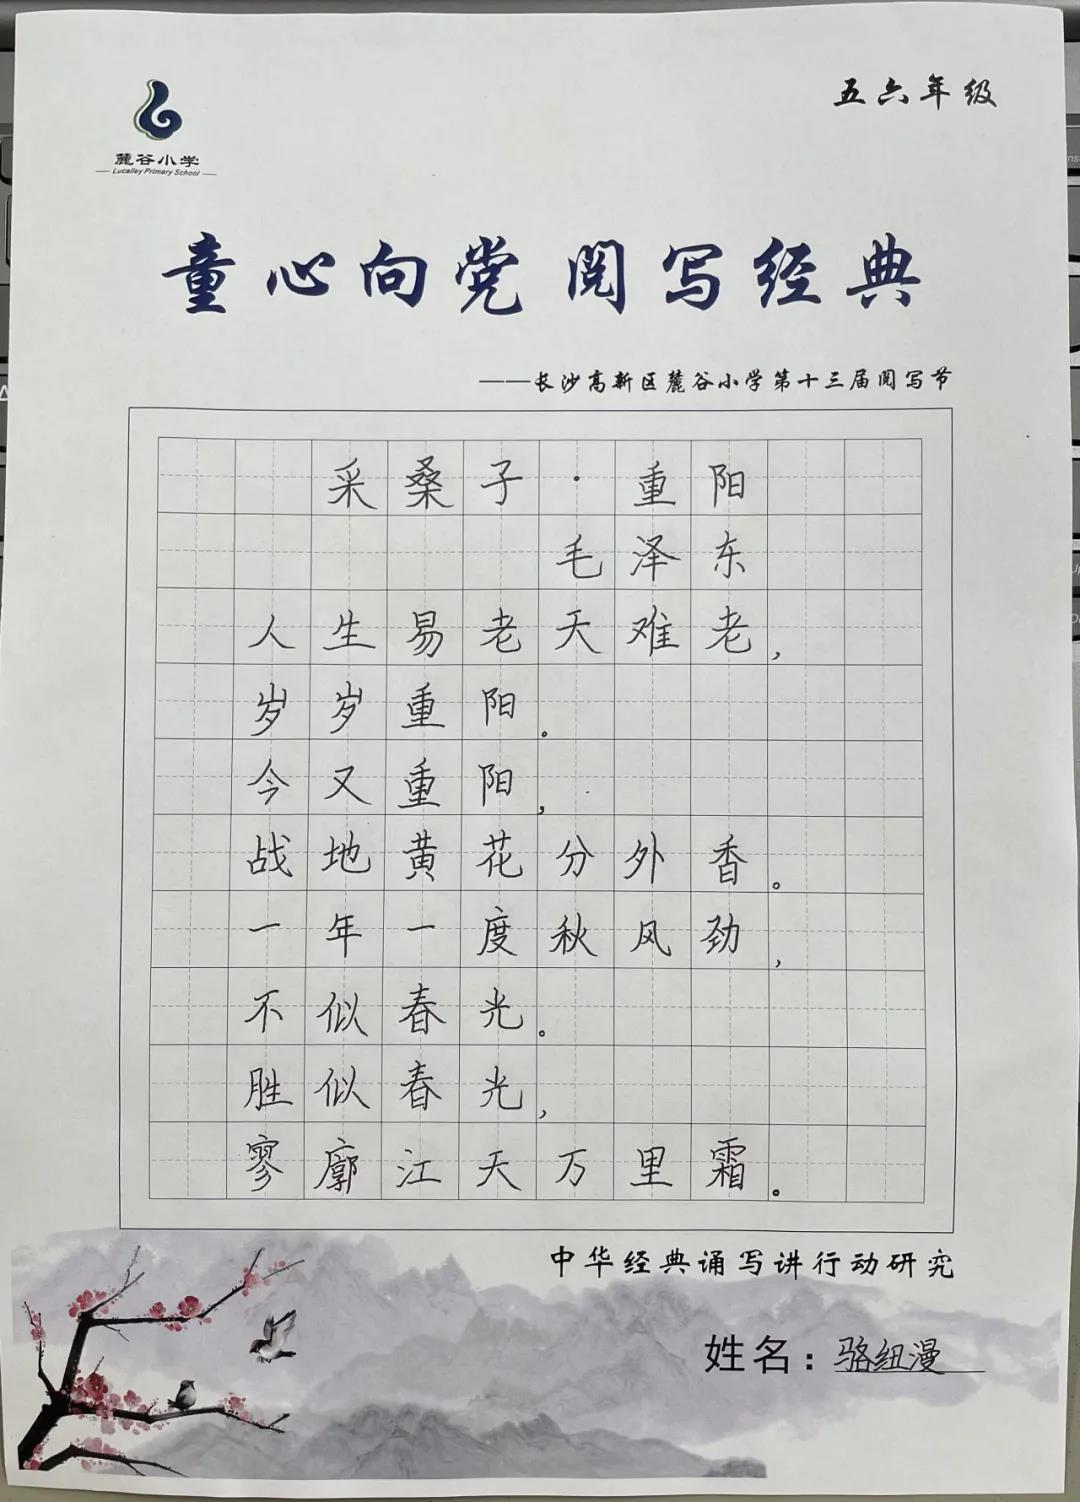 五六年级
麓谷小学
Lucalley Primary School
童心向党 阅写经典
——长沙高新区麓谷小学第十三届阅写节
采桑子·重阳
毛泽东
人生易老天难老，
岁岁重阳。
今又重阳，
战地黄花分外香。
一年一度秋风劲，
不似春光。
胜似春光，
寥廓江天万里霜。
中华经典诵写讲行动研究
姓名：骆纽漫